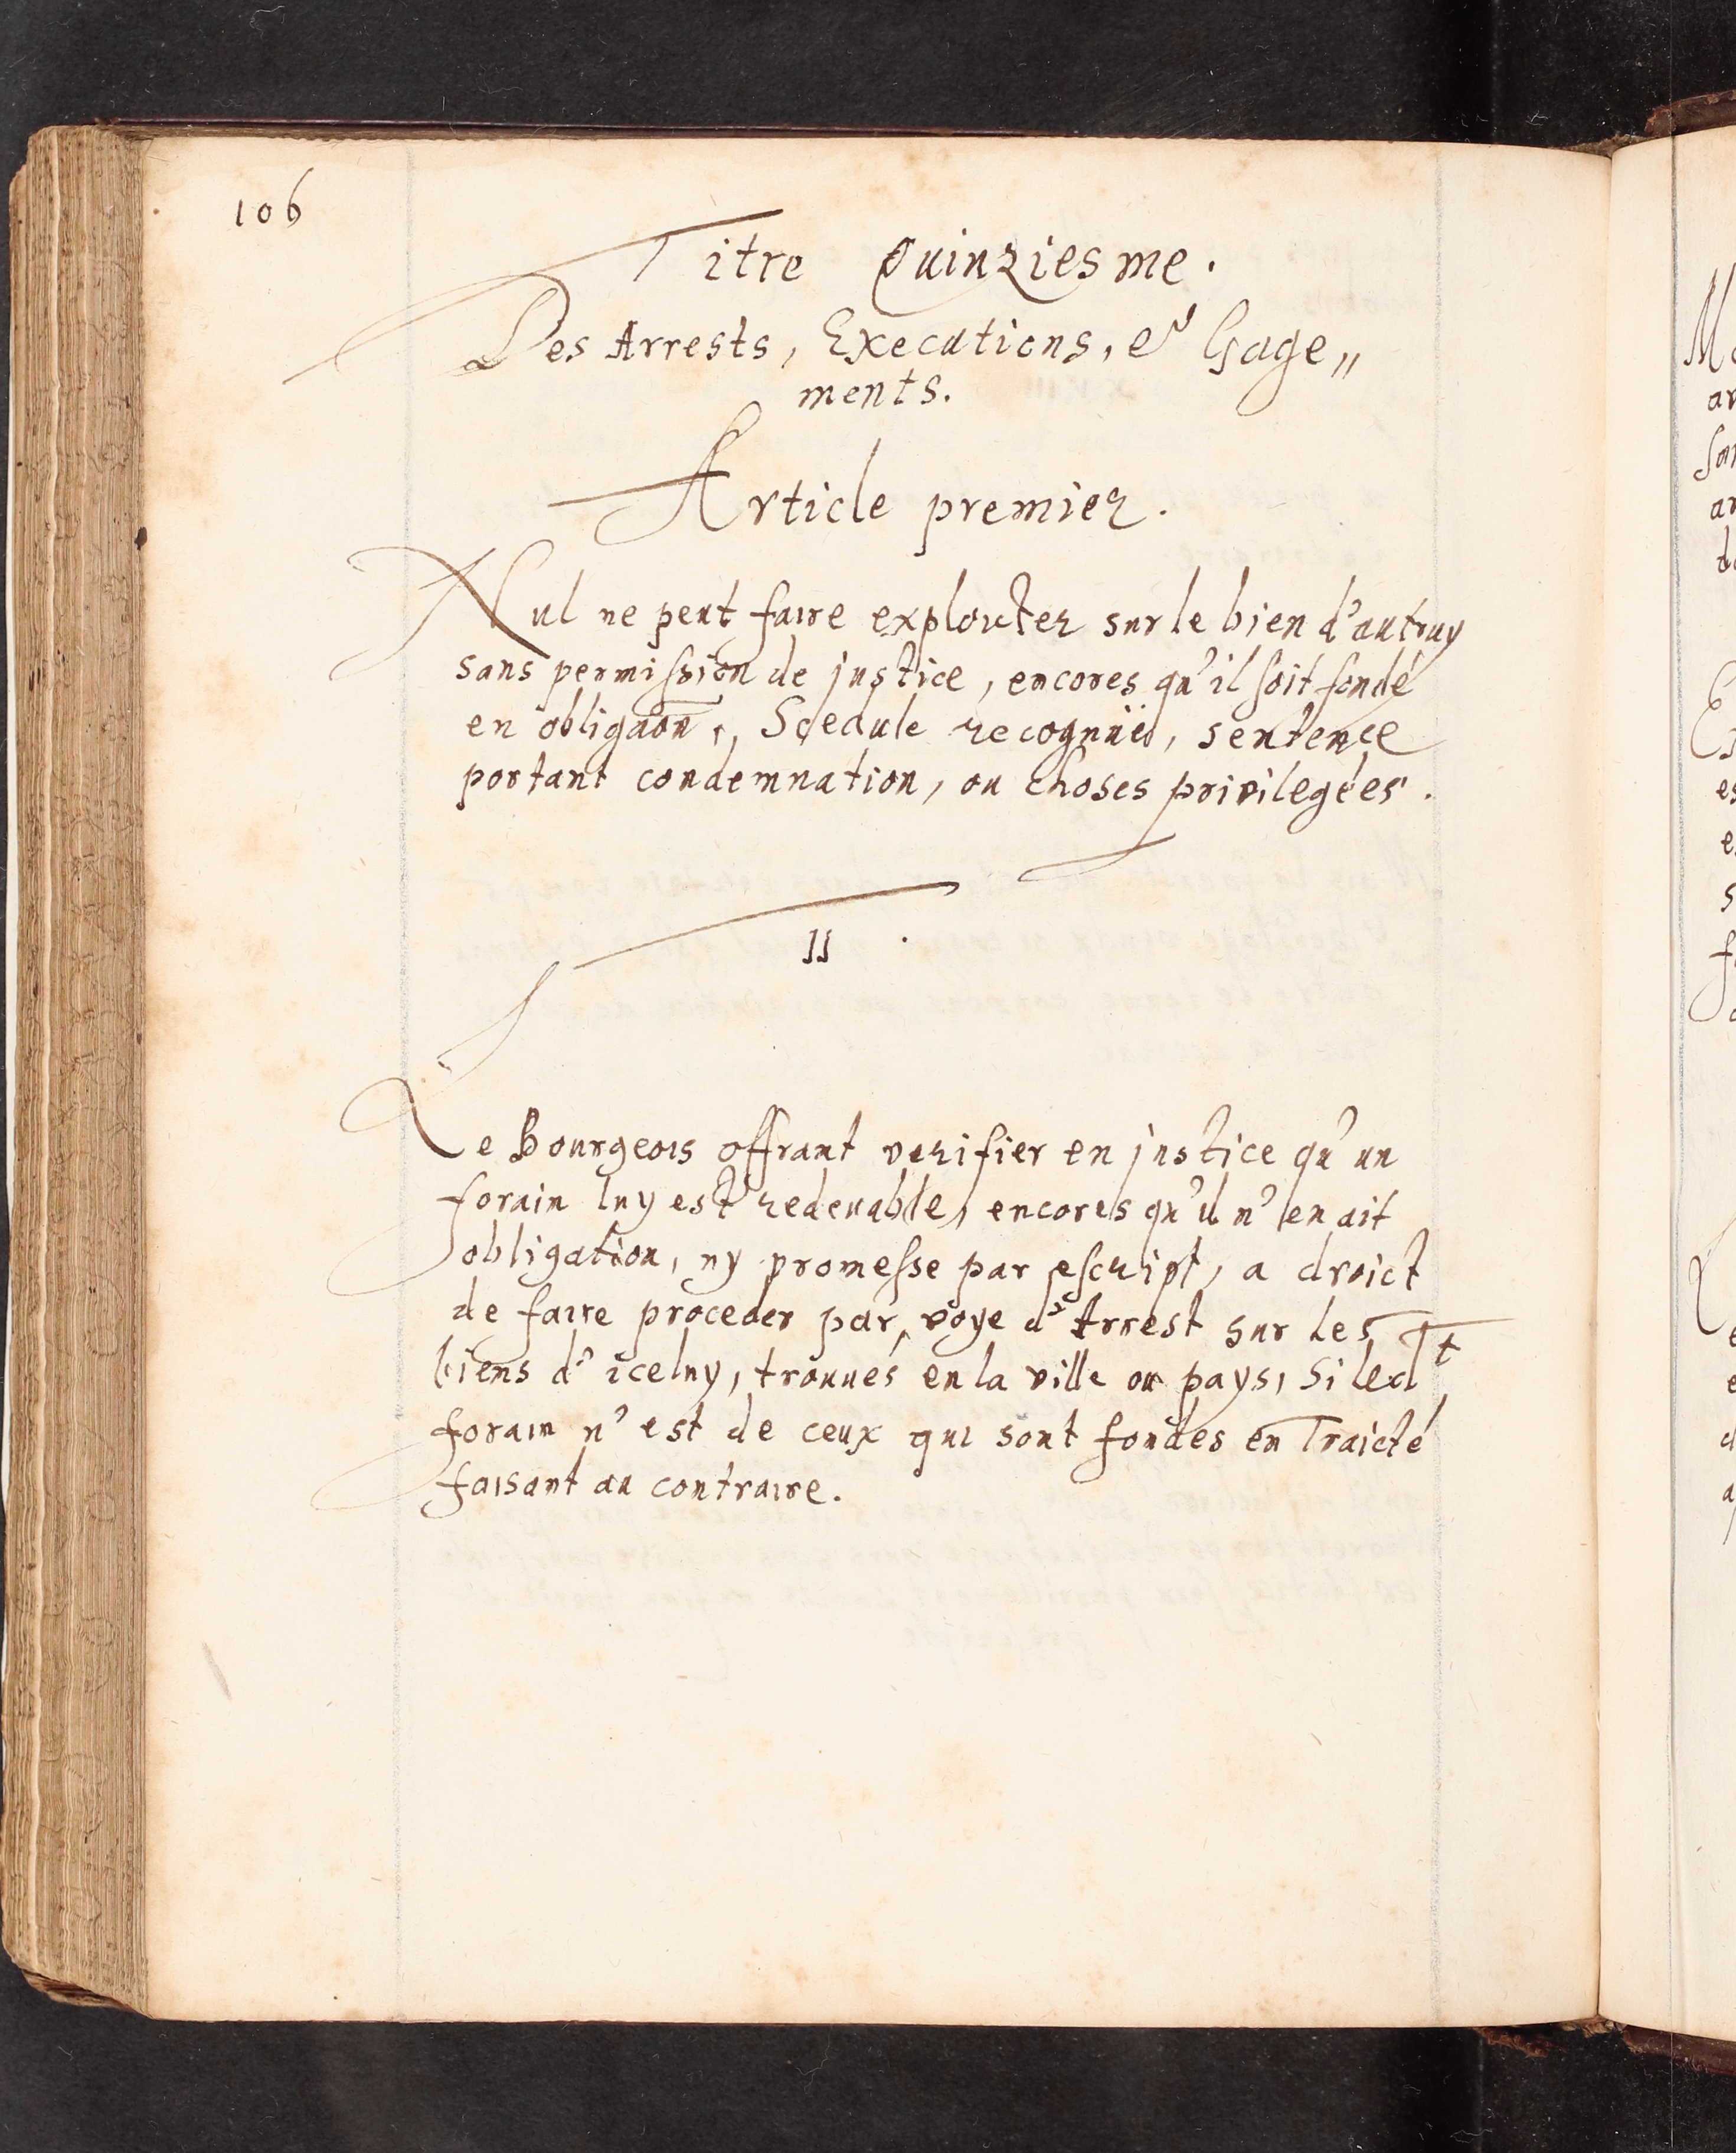 106
Titre Quinziesme.
Des Arrests, Executions, et Gage„
ments.
Article premier.
Nul ne peut faire exploicter sur le bien d'autruy
sans permission de justice, encores qu'il soit fondé
en obligaōn, Scedule recognüe, sentence
portant condemnation, ou choses privilegées.
II.
Le Bourgeois offrant verifier en justice qu'un
forain luy est redeuable, encores qu'il n'en ait
obligation, ny promesse par escript, a droict
de faire proceder par voye d'Arrest sur les
biens d'iceluy, trouués en la ville ou pays, Si led.t
forain n'est de ceux qui sont fondés en Traicté
faisant au contraire.